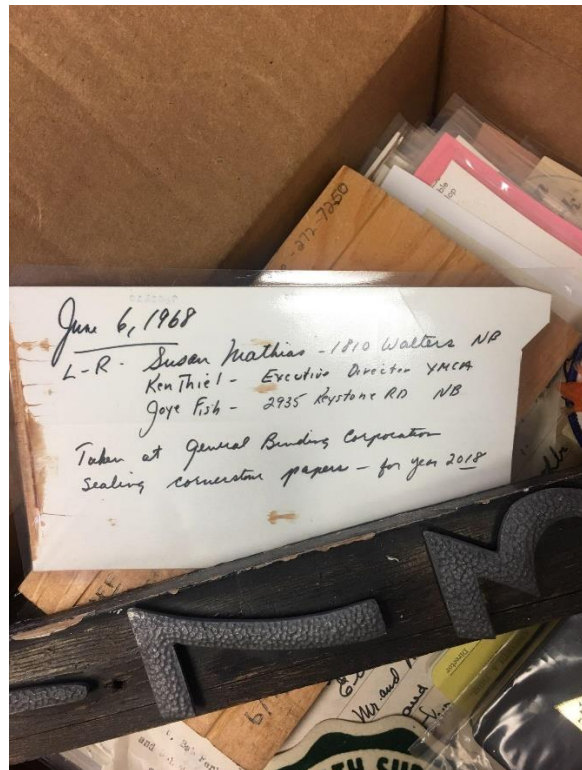 -272-7250
June 6, 1968
L-R- Susan Mathias - 1810 Walters NB
Ken Thiel - Executive Director YMCA
Joye Fish - 2935 Keystone RD NB
Taken at General Binding Corporation
Sealing cornerstone papers - for year 2018
Director
Mr. and
and
TH SU